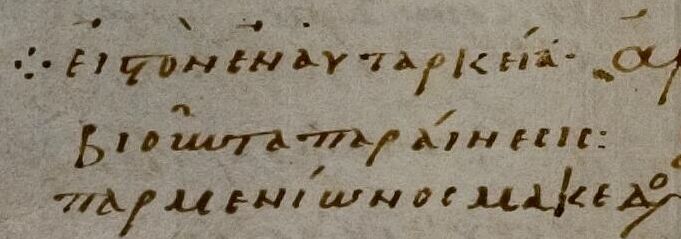 ⁘ εἰς τὸν ἐν αὐταρκεία·
βιοῦντα παραίνεσις:
παρμενίωνος μακεδο